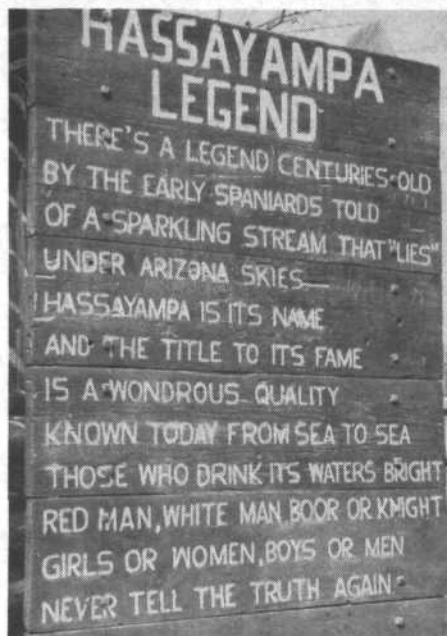 HASSAYAMPA
LEGEND
THERE'S A LEGEND CENTURIES OLD
BY THE EARLY SPANIARDS TOLD
OF A SPARKLING STREAM THAT "LIES"
UNDER ARIZONA SKIES—
HASSAYAMPA IS ITS NAME
AND THE TITLE TO ITS FAME
IS A WONDROUS QUALITY
KNOWN TODAY FROM SEA TO SEA
THOSE WHO DRINK ITS WATERS BRIGHT
RED MAN, WHITE MAN, BOOR OR KNIGHT
GIRLS OR WOMEN, BOYS OR MEN
NEVER TELL THE TRUTH AGAIN